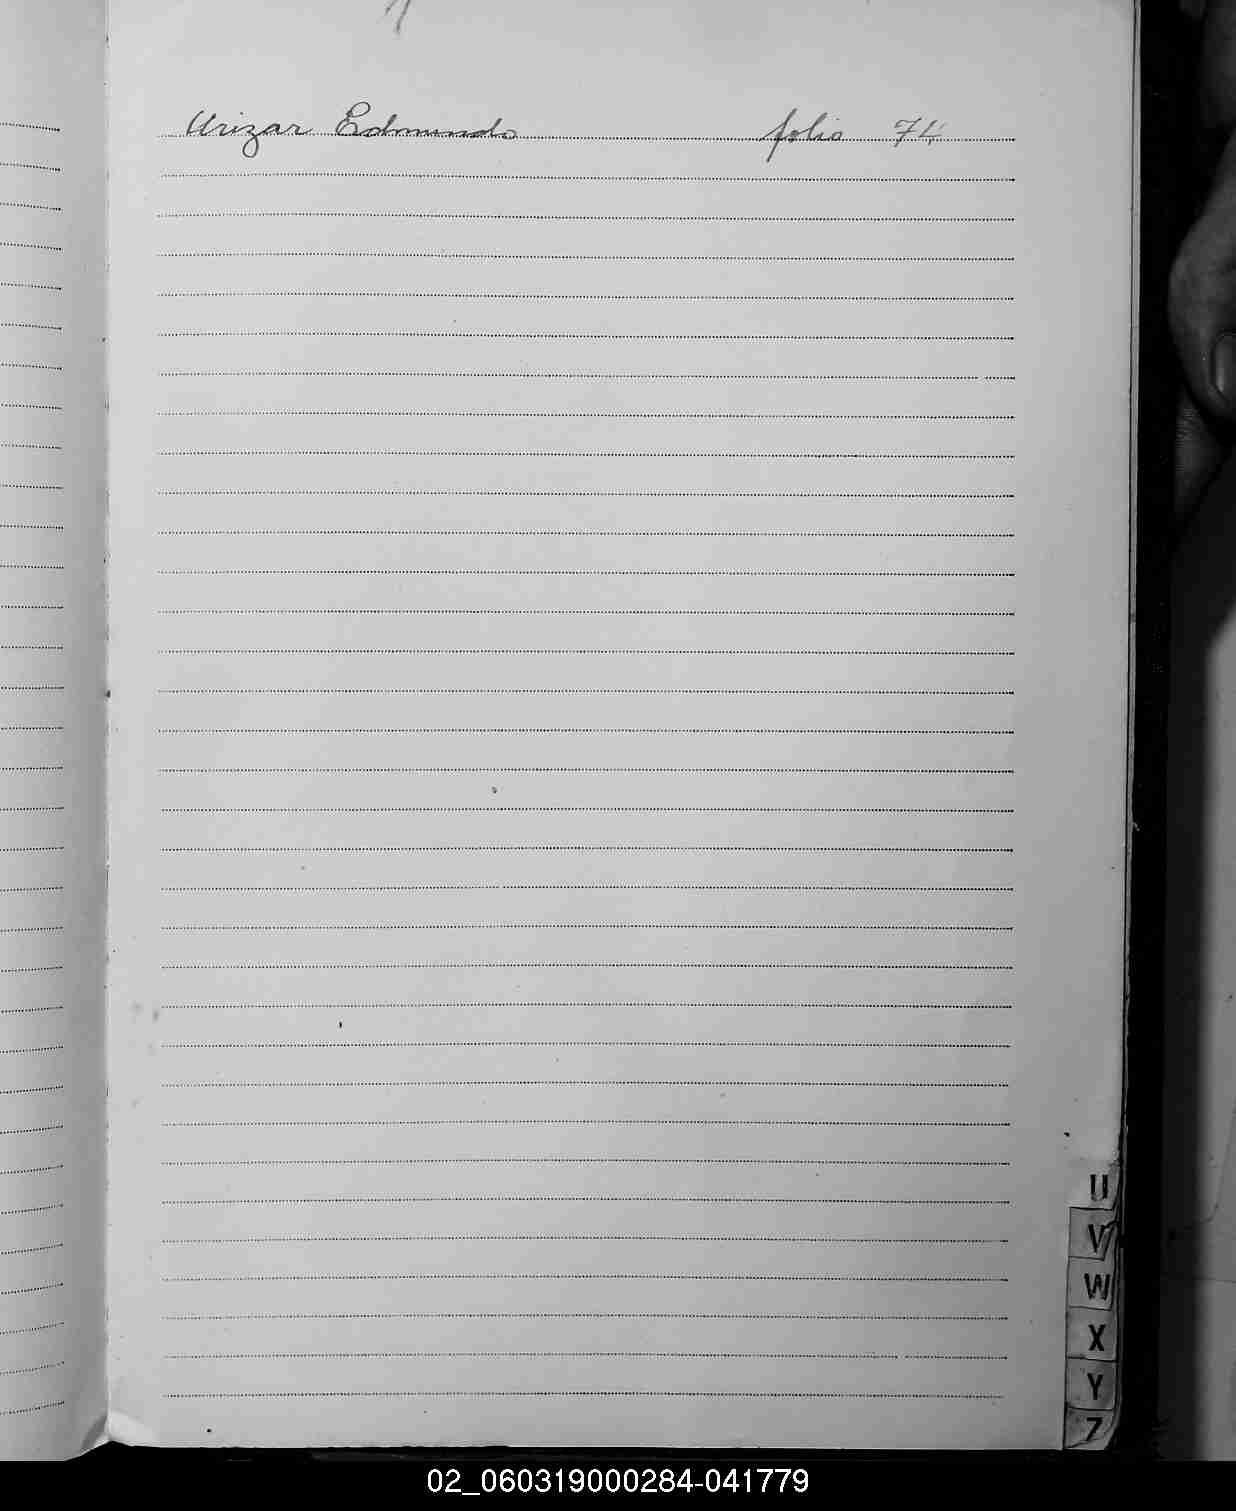 Urizar Edmundo folio 74
U
V
W
X
Y
Z
02_060319000284-041779